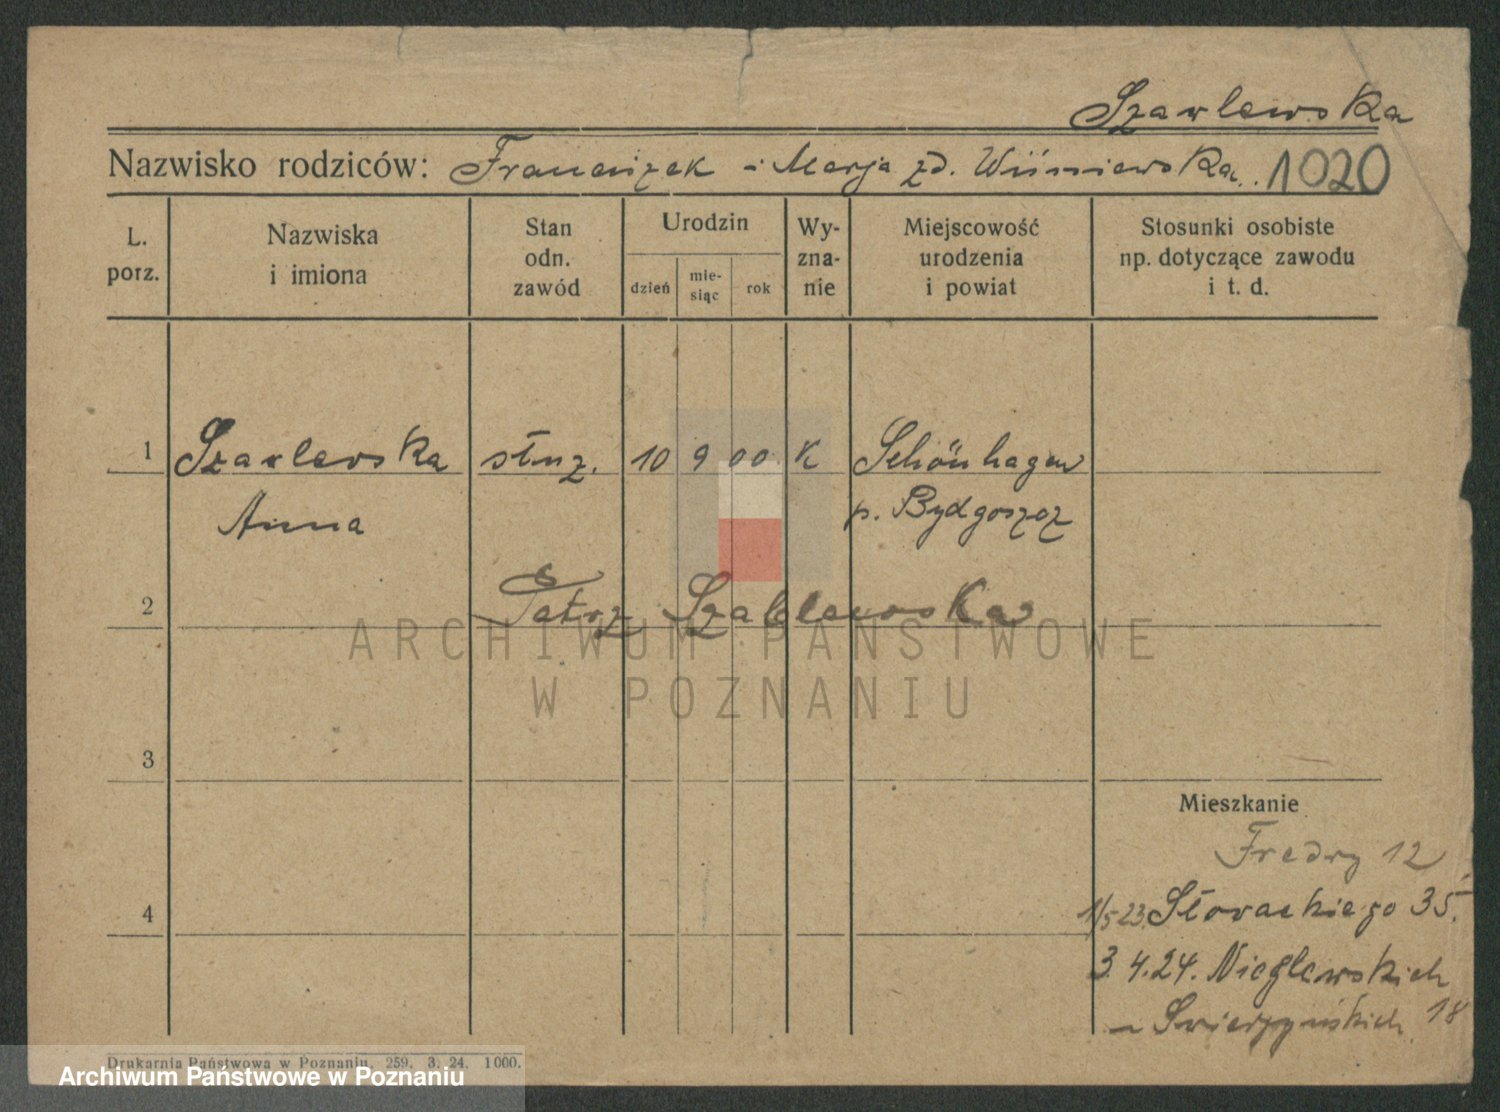 Szarlewska
Nazwisko rodziców: Franciszek i Marja zd. Wiśniewska. 1020
L. porz.
Nazwiska i imiona
Stan odn. zawód
Urodzin
dzień
mie-siąc
rok
Wy-zna-nie
Miejscowość urodzenia i powiat
Stosunki osobiste np. dotyczące zawodu i t. d.
1 Szarlewska służ. 10 9 00 K Schönhagen
Anna p. Bydgoszcz
2 Patrz Szablewska
ARCHIWUM PAŃSTWOWE
W POZNANIU
3
Mieszkanie
Fredry 12
4 1/5 23. Słowackiego 35.
3.4.24. Niegolewskich
18
Drukarnia Państwowa w Poznaniu. 259. 3. 24. 1000.
Archiwum Państwowe w Poznaniu